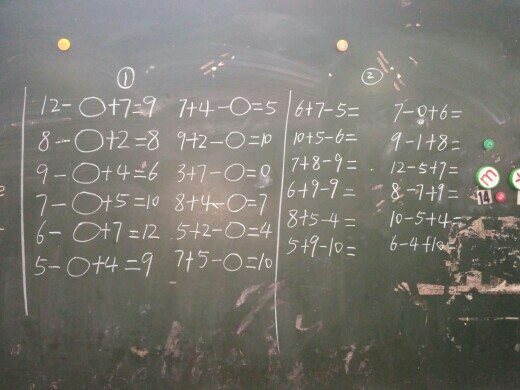 ①
12-○+7=9 7+4-○=5
8-○+2=8 9+2-○=10
9-○+4=6 3+7-○=0
7-○+5=10 8+4-○=7
6-○+7=12 5+2-○=4
5-○+4=9 7+5-○=10
②
6+7-5= 7-0+6=
10+5-6= 9-1+8=
7+8-9= 12-5+7=
6+9-9= 8-7+9=
8+5-4= 10-5+4=
5+9-10= 6-4+10=
m
14